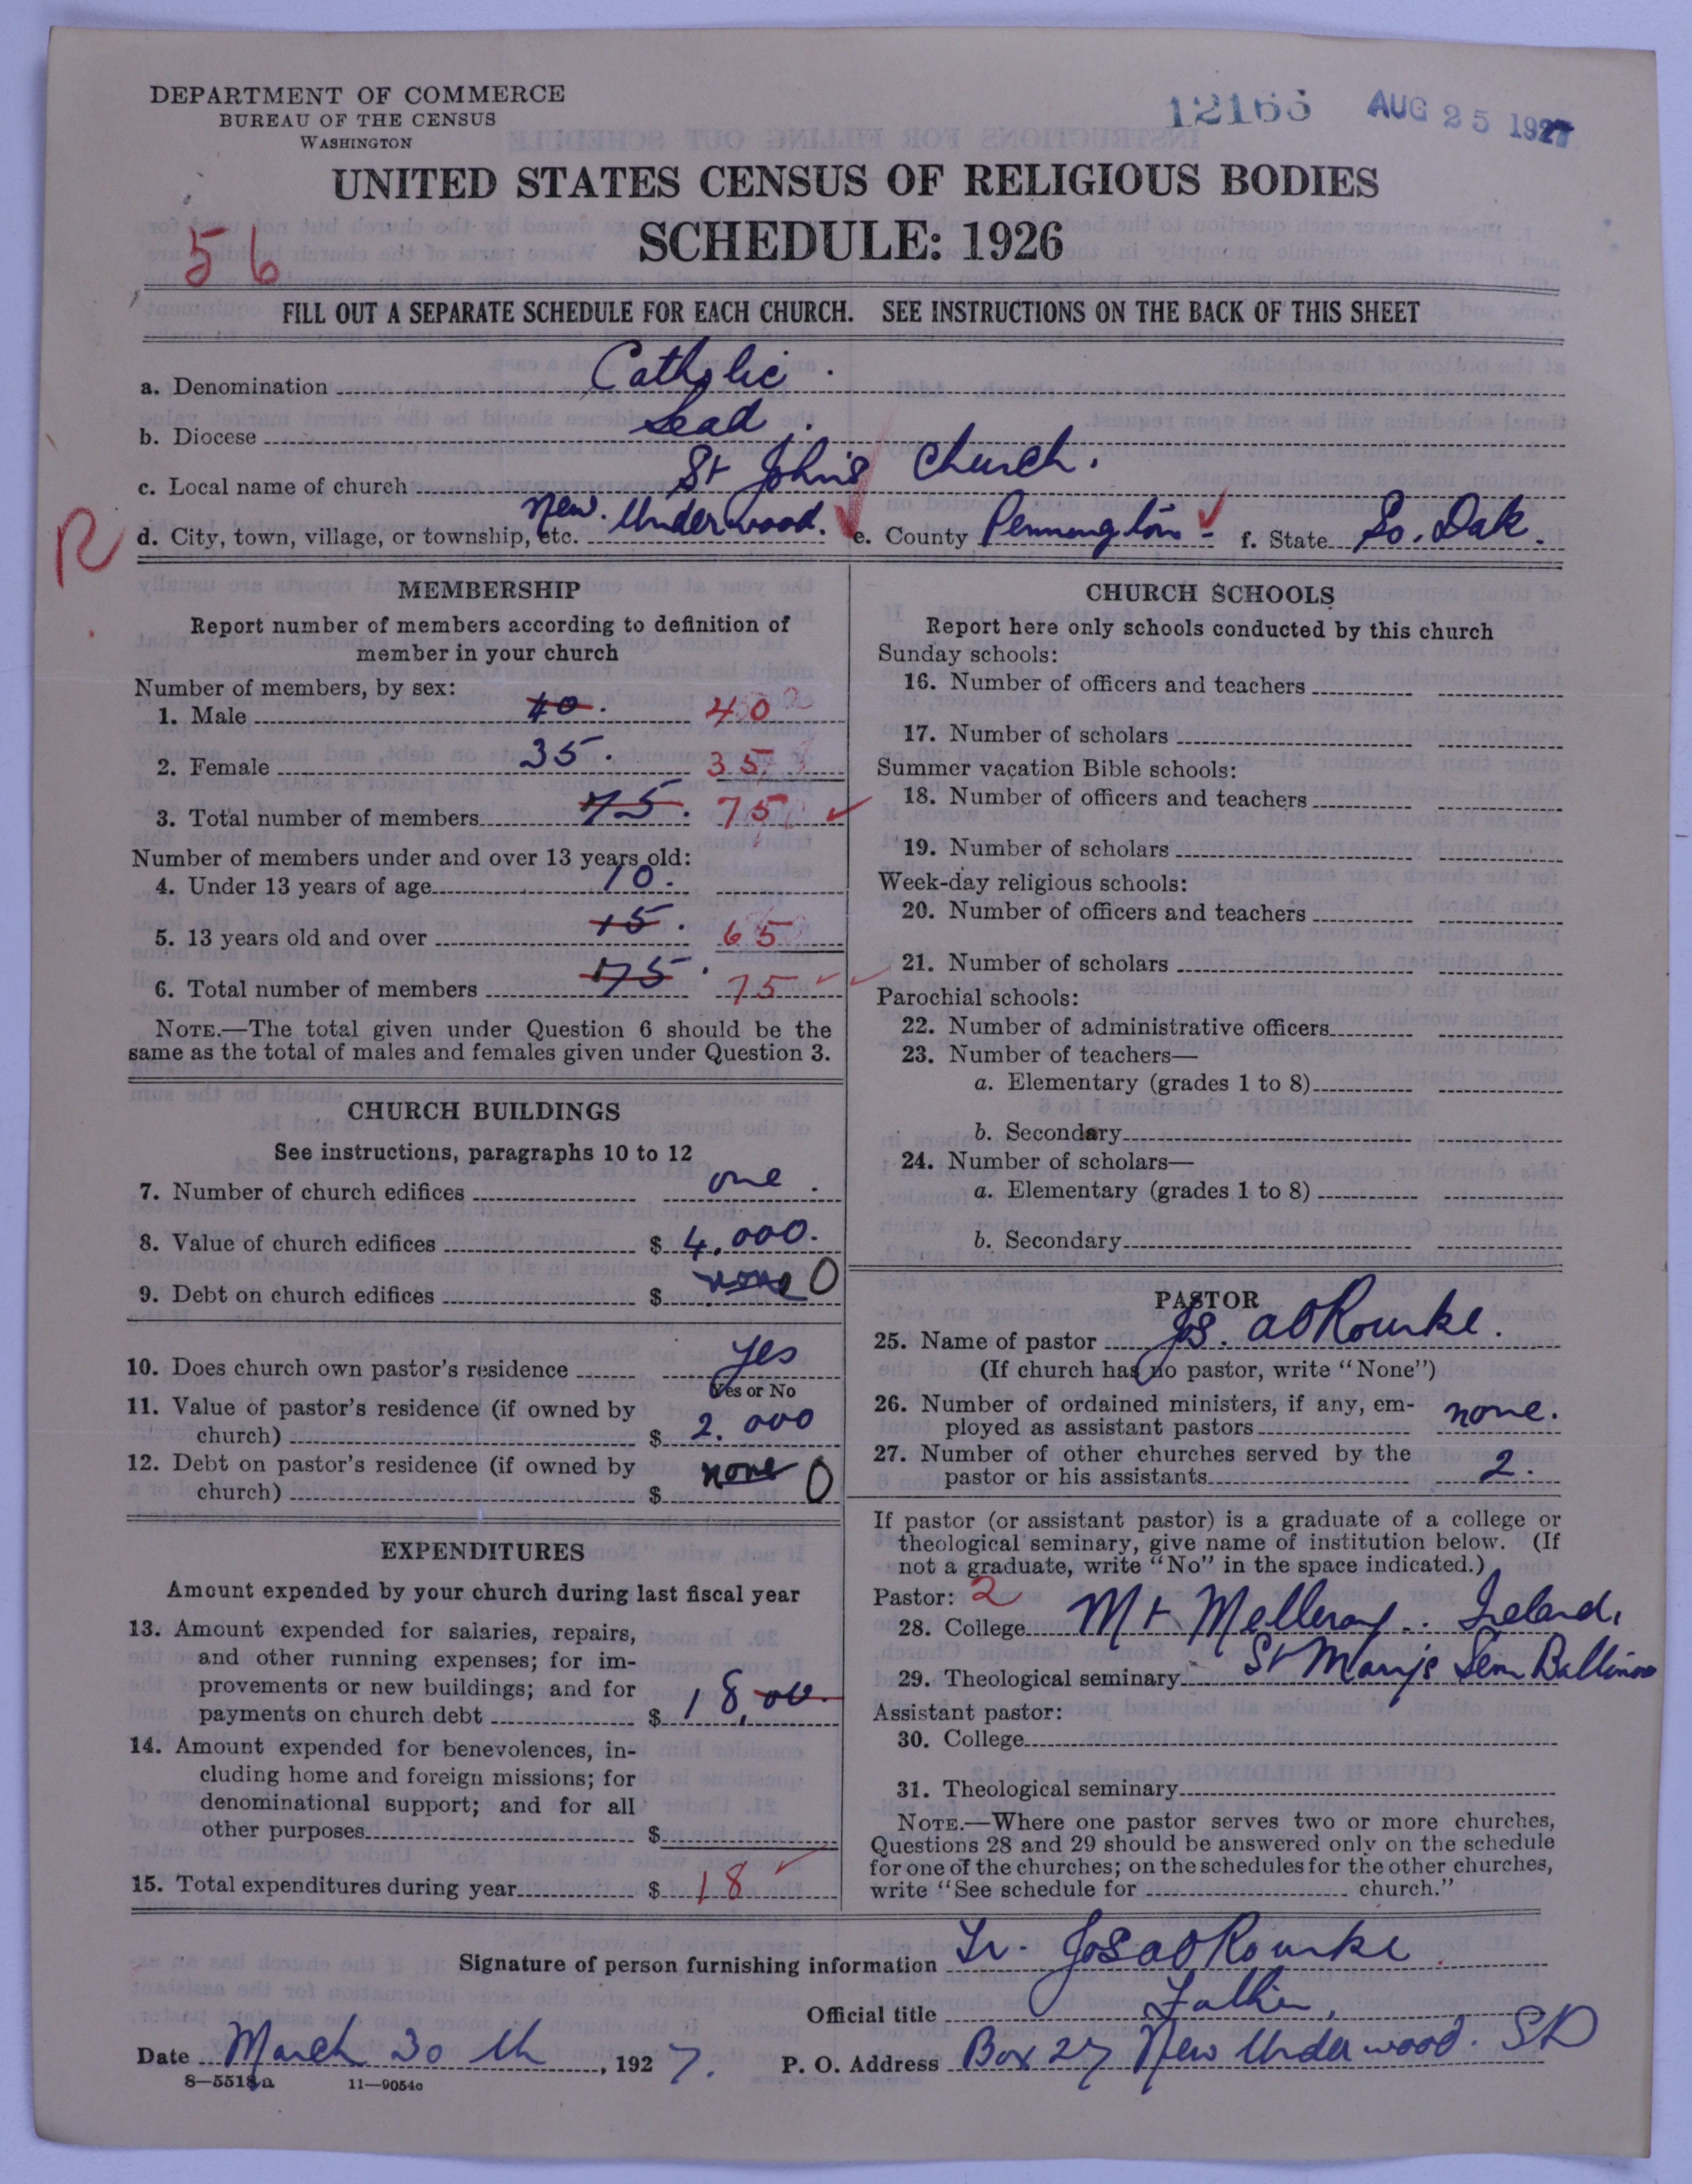 DEPARTMENT OF COMMERCE
BUREAU OF THE CENSUS
WASHINGTON
AUG 25 1927
UNITED STATES CENSUS OF RELIGIOUS BODIES
SCHEDULE: 1926
56
FILL OUT A SEPARATE SCHEDULE FOR EACH CHURCH. SEE INSTRUCTIONS ON THE BACK OF THIS SHEET
a. Denomination Catholic.
b. Diocese Lead.
c. Local name of church St John's Church.
R
d. City, town, village, or township, etc. New. Underwood. e. County Pennington f. State So. Dak.
MEMBERSHIP
Report number of members according to definition of
member in your church
Number of members, by sex:
1. Male 40. 40
2. Female 35. 35
3. Total number of members 75. 75
Number of members under and over 13 years old:
4. Under 13 years of age 10.
5. 13 years old and over 15. 65
6. Total number of members 75. 75
NOTE.—The total given under Question 6 should be the
same as the total of males and females given under Question 3.
CHURCH BUILDINGS
See instructions, paragraphs 10 to 12
7. Number of church edifices one.
8. Value of church edifices $ 4,000.
9. Debt on church edifices $ none 0
10. Does church own pastor's residence yes
Yes or No
11. Value of pastor's residence (if owned by
church) $ 2.000
12. Debt on pastor's residence (if owned by
church) $ none 0
EXPENDITURES
Amount expended by your church during last fiscal year
13. Amount expended for salaries, repairs,
and other running expenses; for im-
provements or new buildings; and for
payments on church debt $ 18.00.
14. Amount expended for benevolences, in-
cluding home and foreign missions; for
denominational support; and for all
other purposes $
15. Total expenditures during year $ 18
CHURCH SCHOOLS
Report here only schools conducted by this church
Sunday schools:
16. Number of officers and teachers
17. Number of scholars
Summer vacation Bible schools:
18. Number of officers and teachers
19. Number of scholars
Week-day religious schools:
20. Number of officers and teachers
21. Number of scholars
Parochial schools:
22. Number of administrative officers
23. Number of teachers—
a. Elementary (grades 1 to 8)
b. Secondary
24. Number of scholars—
a. Elementary (grades 1 to 8)
b. Secondary
PASTOR
25. Name of pastor Jos. A O Rourke.
(If church has no pastor, write "None")
26. Number of ordained ministers, if any, em-
ployed as assistant pastors none.
27. Number of other churches served by the
pastor or his assistants 2.
If pastor (or assistant pastor) is a graduate of a college or
theological seminary, give name of institution below. (If
not a graduate, write "No" in the space indicated.)
Pastor: 2
28. College Mt Melleray.. Ireland,
29. Theological seminary St Marys Sem Baltimore
Assistant pastor:
30. College
31. Theological seminary
NOTE.—Where one pastor serves two or more churches,
Questions 28 and 29 should be answered only on the schedule
for one of the churches; on the schedules for the other churches,
write "See schedule for church."
Signature of person furnishing information Fr. Jos A O Rourke
Official title Father,
Date March 30 th, 1927. P. O. Address Box 27 New Underwood. SD
8—5518a 11—9054c